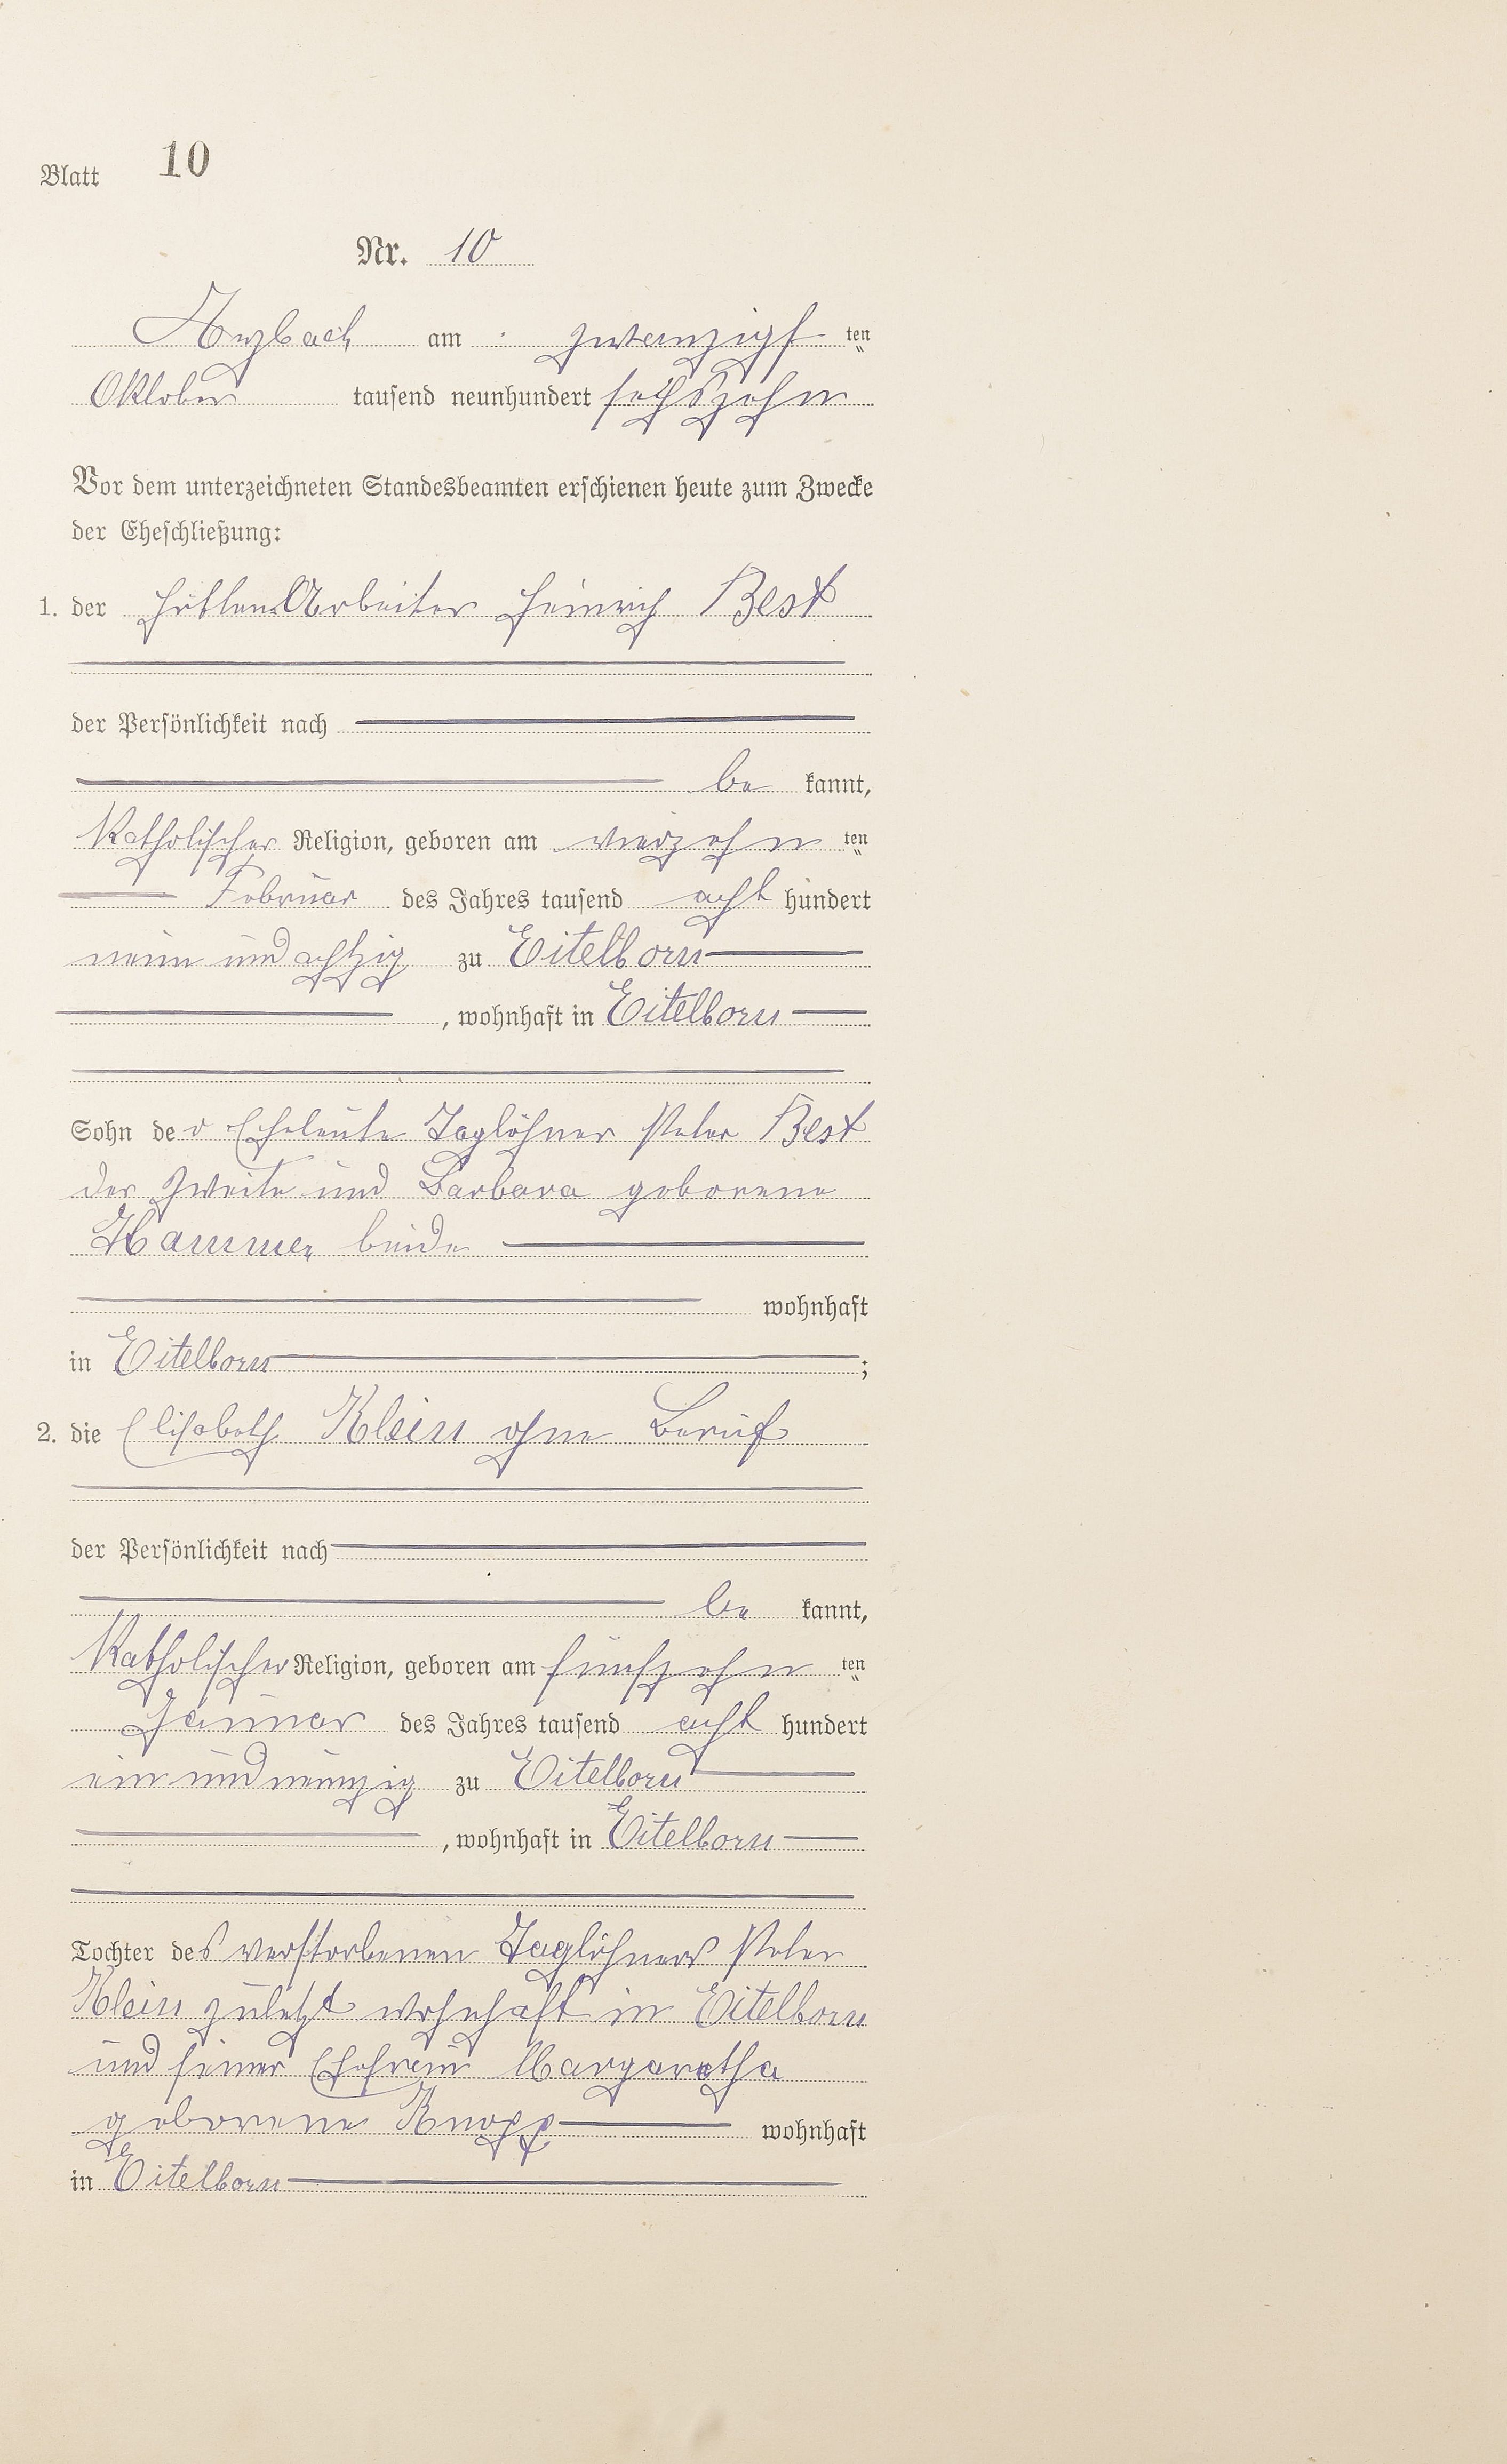 Blatt 10
Nr. 10
Arzbach am zwanzigsten
Oktober tausend neunhundert sechszehn
Vor dem unterzeichneten Standesbeamten erschienen heute zum Zwecke
der Eheschließung:
1. der HüttenArbeiter Heinrich Best
der Persönlichkeit nach
be kannt,
Katholischer Religion, geboren am vierzehn ten
Februar des Jahres tausend acht hundert
neun und achtzig zu Eitelborn
, wohnhaft in Eitelborn
Sohn der Eheleute Taglöhner Peter Best
der Zweite und Barbara geborene
Hammer beide
wohnhaft
in Eitelborn ;
2. die Elisabeth Klein ohne Beruf
der Persönlichkeit nach
be kannt,
Katholischer Religion, geboren am fünfzehn ten
Januar des Jahres tausend acht hundert
ein und neunzig zu Eitelborn
, wohnhaft in Eitelborn
Tochter des verstorbenen Taglöhners Peter
Klein zuletzt wohnhaft in Eitelborn
und seiner Ehefrau Margaretha
geborene Knopp wohnhaft
in Eitelborn